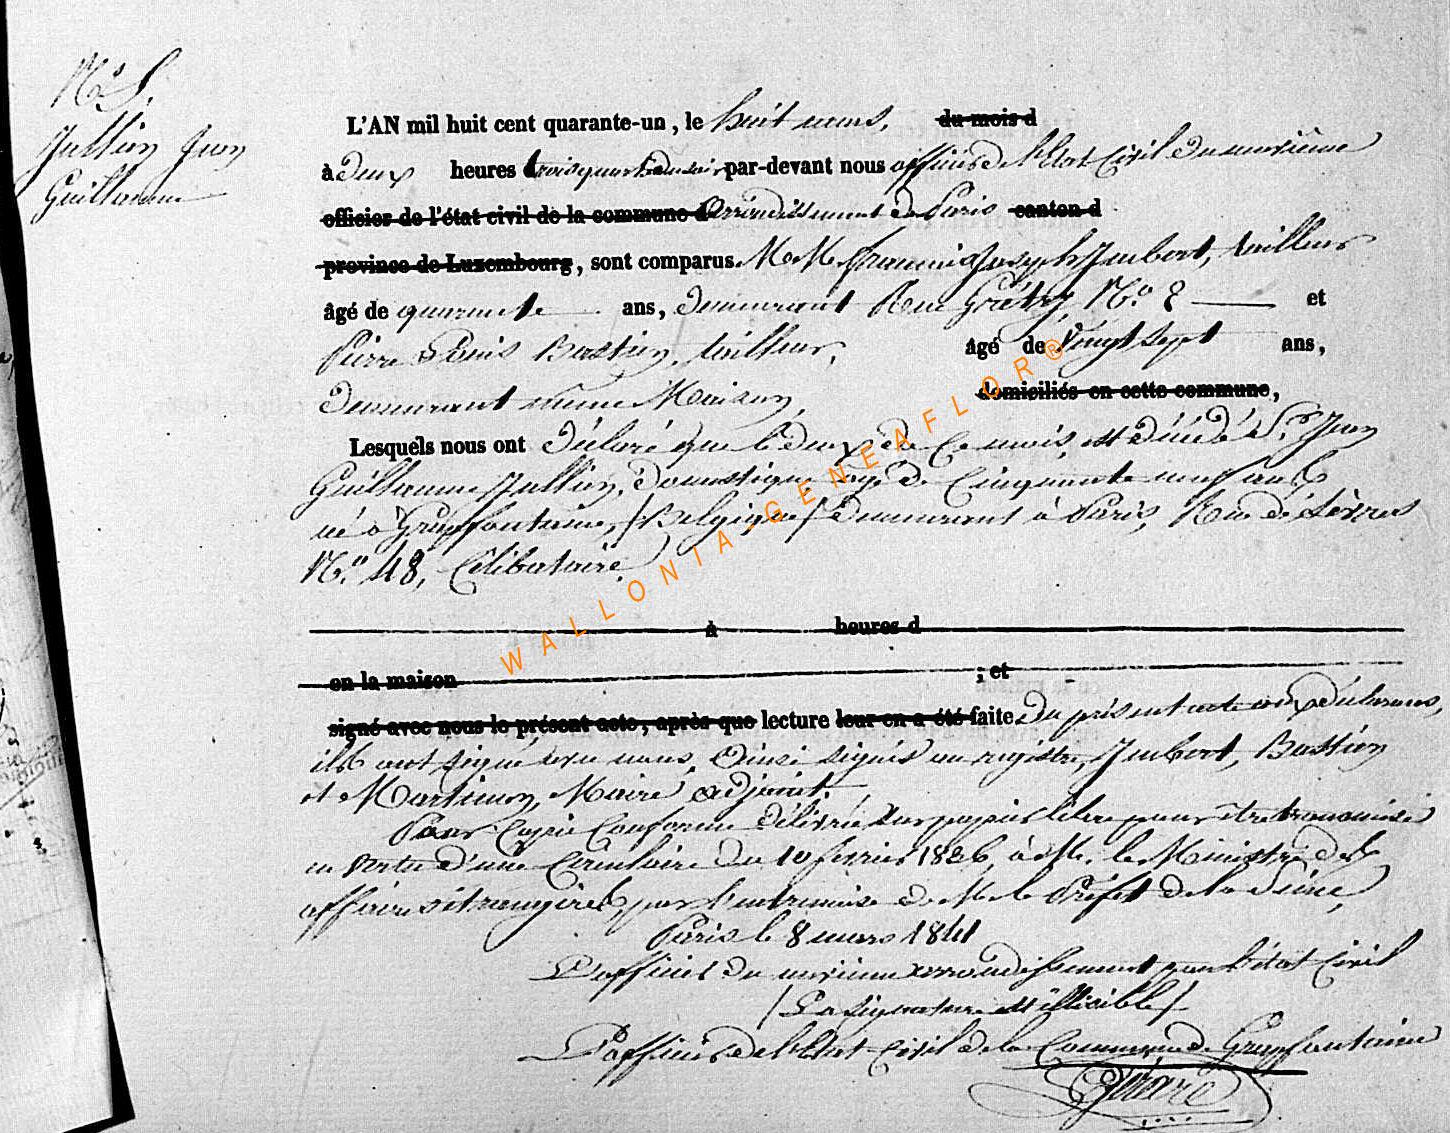 N.o 5.
Jullien Jean
Guillaume
L'AN mil huit cent quarante-un, le huit mars, du mois d
à deux heures trois quarts du soir par-devant nous officier de l'Etat Civil du onzième
officier de l'état civil de la commune d arrondissement de Paris canton d
province de Luxembourg, sont comparus M.M. François Joseph Imbert, tailleur
âgé de quarante ans, demeurant Rue Grétry, N.o 8 et
Pierre Denis Bastien, tailleur, âgé de vingt sept ans,
demeurant même Maison, domiciliés en cette commune,
Lesquels nous ont déclaré que le deux de ce mois, est décédé S.r Jean
Guillaume Jullien, domestique, âgé de Cinquante neuf ans
né à Grapfontaine, (Belgique) demeurant à Paris, Rue de Sèvres
N.o 48, Célibataire.
à heures d
en la maison ; et
signé avec nous le présent acte, après que lecture leur en a été faite du présent acte aux déclarans,
ils ont signé avec nous. Ainsi signés au registre, Imbert, Bastien
et Martinon, Maire adjoint.
Pour Copie Conforme délivrée sur papier libre pour être transmise
en vertu d'une Circulaire du 10 février 1826, à M. le Ministre des
affaires étrangères, par l'entremise de M. le Préfet de la Seine,
Paris le 8 mars 1841
L'officier du onzième arrondissement pour l'état Civil
(La signature est illisible)
L'officier de l'Etat Civil de la Commune de Grapfontaine
WALLONIA-GENEAFLOR®